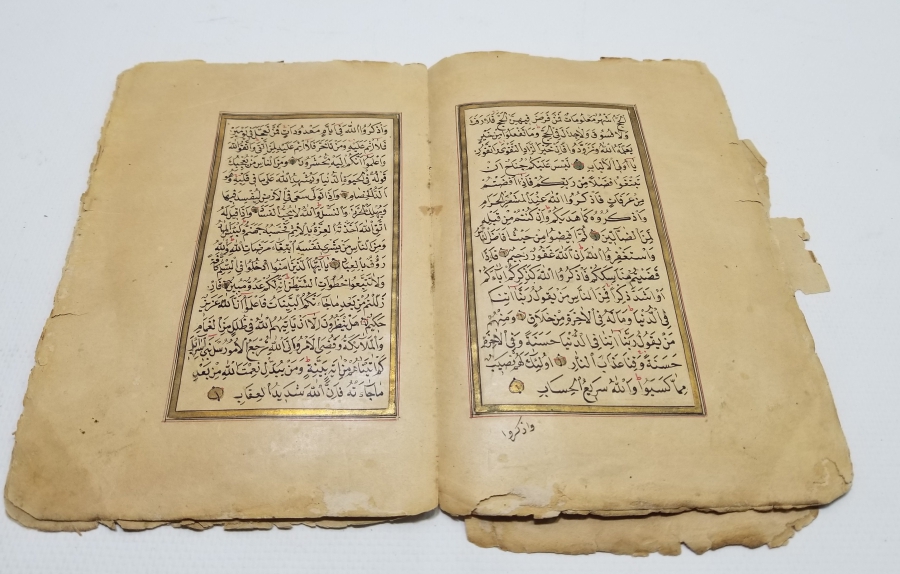 اَلْحَجُّ اَشْهُرٌ مَعْلُومَاتٌ فَمَنْ فَرَضَ فِيهِنَّ الْحَجَّ فَلَا رَفَثَ
وَلَا فُسُوقَ وَلَا جِدَالَ فِي الْحَجِّ وَمَا تَفْعَلُوا مِنْ خَيْرٍ
يَعْلَمْهُ اللّٰهُ وَتَزَوَّدُوا فَاِنَّ خَيْرَ الزَّادِ التَّقْوٰى وَاتَّقُونِ
يَا اُولِي الْاَلْبَابِ لَيْسَ عَلَيْكُمْ جُنَاحٌ اَنْ
تَبْتَغُوا فَضْلًا مِنْ رَبِّكُمْ فَاِذَا اَفَضْتُمْ
مِنْ عَرَفَاتٍ فَاذْكُرُوا اللّٰهَ عِنْدَ الْمَشْعَرِ الْحَرَامِ
وَاذْكُرُوهُ كَمَا هَدٰيكُمْ وَاِنْ كُنْتُمْ مِنْ قَبْلِهِ
لَمِنَ الضَّالِّينَ ثُمَّ اَفِيضُوا مِنْ حَيْثُ اَفَاضَ النَّاسُ
وَاسْتَغْفِرُوا اللّٰهَ اِنَّ اللّٰهَ غَفُورٌ رَحِيمٌ فَاِذَا
قَضَيْتُمْ مَنَاسِكَكُمْ فَاذْكُرُوا اللّٰهَ كَذِكْرِكُمْ اٰبَاءَكُمْ
اَوْ اَشَدَّ ذِكْرًا فَمِنَ النَّاسِ مَنْ يَقُولُ رَبَّنَا اٰتِنَا
فِي الدُّنْيَا وَمَا لَهُ فِي الْاٰخِرَةِ مِنْ خَلَاقٍ وَمِنْهُمْ
مَنْ يَقُولُ رَبَّنَا اٰتِنَا فِي الدُّنْيَا حَسَنَةً وَفِي الْاٰخِرَةِ
حَسَنَةً وَقِنَا عَذَابَ النَّارِ اُولٰئِكَ لَهُمْ نَصِيبٌ
مِمَّا كَسَبُوا وَاللّٰهُ سَرِيعُ الْحِسَابِ
واذكروا
وَاذْكُرُوا اللّٰهَ فِي اَيَّامٍ مَعْدُودَاتٍ فَمَنْ تَعَجَّلَ فِي يَوْمَيْنِ
فَلَا اِثْمَ عَلَيْهِ وَمَنْ تَاَخَّرَ فَلَا اِثْمَ عَلَيْهِ لِمَنِ اتَّقٰى وَاتَّقُوا اللّٰهَ
وَاعْلَمُوا اَنَّكُمْ اِلَيْهِ تُحْشَرُونَ وَمِنَ النَّاسِ مَنْ يُعْجِبُكَ
قَوْلُهُ فِي الْحَيٰوةِ الدُّنْيَا وَيُشْهِدُ اللّٰهَ عَلٰى مَا فِي قَلْبِهِ وَهُوَ
اَلَدُّ الْخِصَامِ وَاِذَا تَوَلّٰى سَعٰى فِي الْاَرْضِ لِيُفْسِدَ فِيهَا
وَيُهْلِكَ الْحَرْثَ وَالنَّسْلَ وَاللّٰهُ لَا يُحِبُّ الْفَسَادَ وَاِذَا قِيلَ لَهُ
اتَّقِ اللّٰهَ اَخَذَتْهُ الْعِزَّةُ بِالْاِثْمِ فَحَسْبُهُ جَهَنَّمُ وَلَبِئْسَ الْمِهَادُ
وَمِنَ النَّاسِ مَنْ يَشْرِي نَفْسَهُ ابْتِغَاءَ مَرْضَاتِ اللّٰهِ وَاللّٰهُ
رَؤُفٌ بِالْعِبَادِ يَا اَيُّهَا الَّذِينَ اٰمَنُوا ادْخُلُوا فِي السِّلْمِ كَافَّةً
وَلَا تَتَّبِعُوا خُطُوَاتِ الشَّيْطَانِ اِنَّهُ لَكُمْ عَدُوٌّ مُبِينٌ فَاِنْ
زَلَلْتُمْ مِنْ بَعْدِ مَا جَاءَتْكُمُ الْبَيِّنَاتُ فَاعْلَمُوا اَنَّ اللّٰهَ عَزِيزٌ
حَكِيمٌ هَلْ يَنْظُرُونَ اِلَّا اَنْ يَاْتِيَهُمُ اللّٰهُ فِي ظُلَلٍ مِنَ الْغَمَامِ
وَالْمَلٰئِكَةُ وَقُضِيَ الْاَمْرُ وَاِلَى اللّٰهِ تُرْجَعُ الْاُمُورُ سَلْ بَنِي اِسْرَائِيلَ
كَمْ اٰتَيْنَاهُمْ مِنْ اٰيَةٍ بَيِّنَةٍ وَمَنْ يُبَدِّلْ نِعْمَةَ اللّٰهِ مِنْ بَعْدِ
مَا جَاءَتْهُ فَاِنَّ اللّٰهَ شَدِيدُ الْعِقَابِ